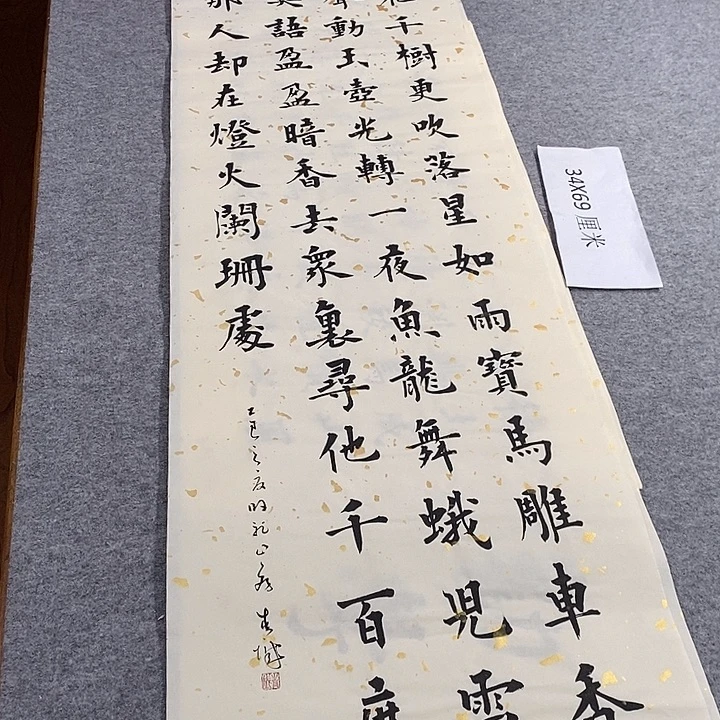 花千樹更吹落星如雨寶馬雕車香
動玉壺光轉一夜魚龍舞蛾兒雪
笑語盈盈暗香去衆裏尋他千百度
那人却在燈火闌珊處
34X69 厘米